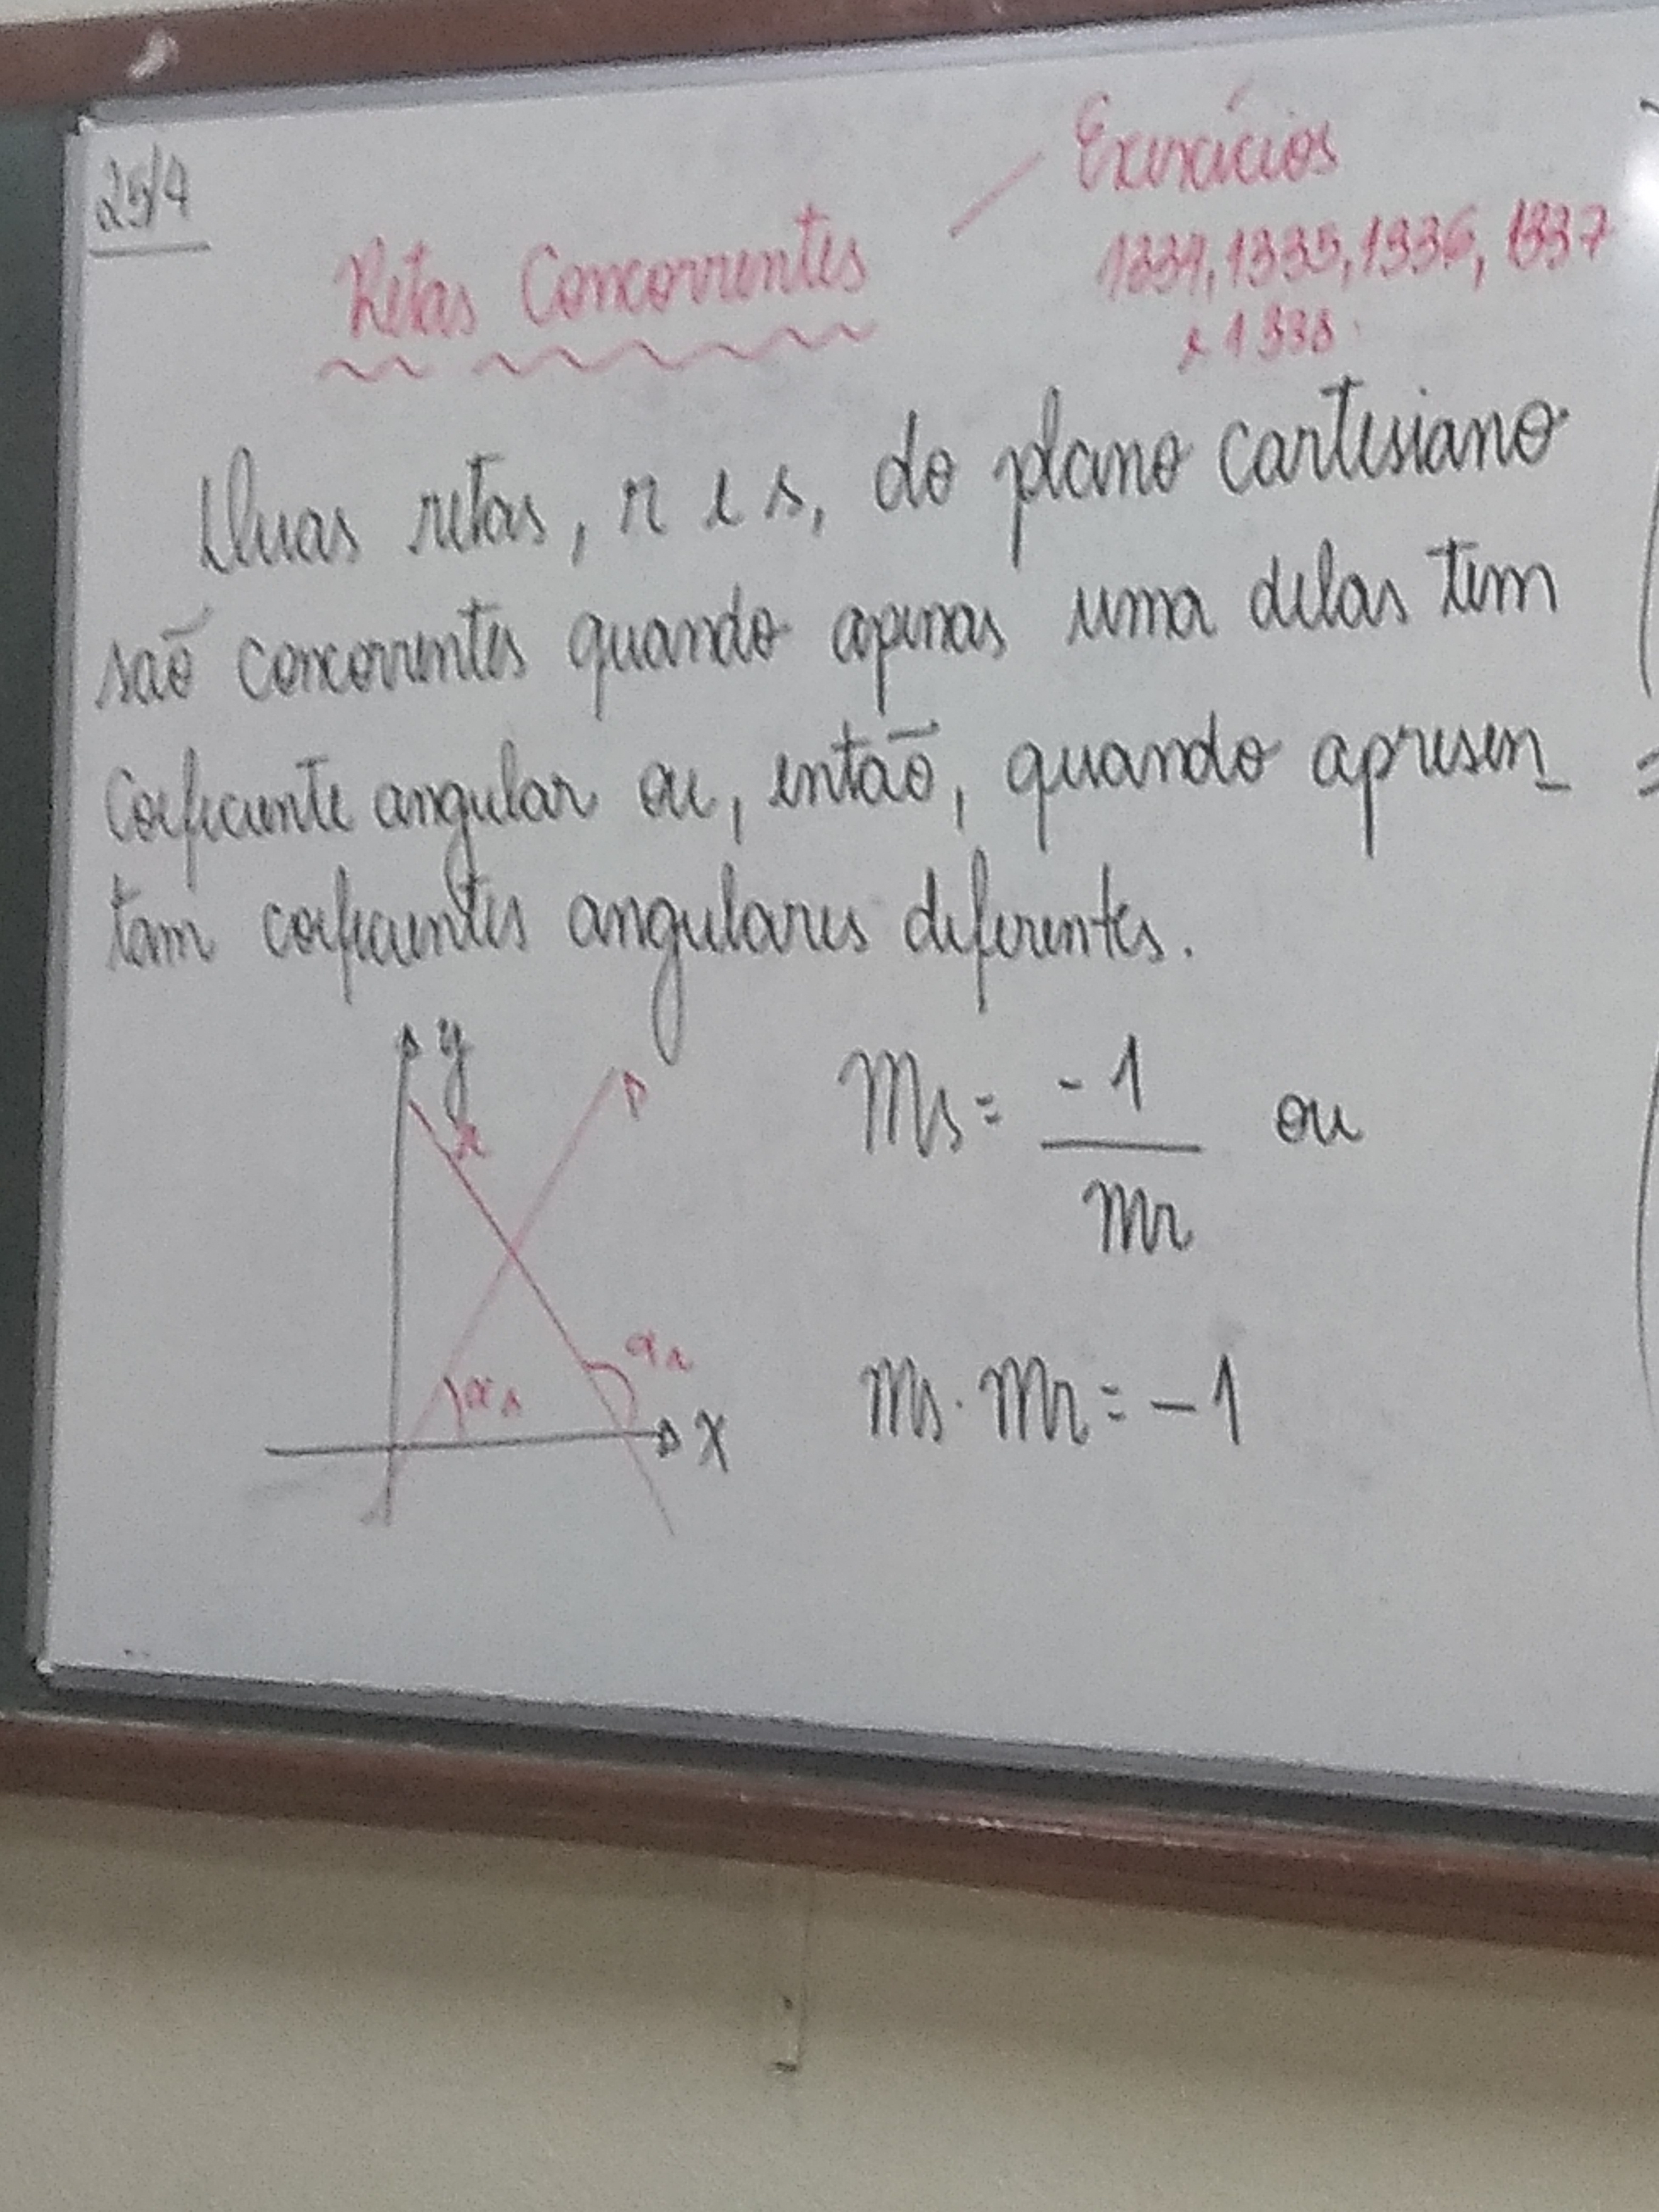 25/4
Exercícios
Retas Concorrentes
1334, 1335, 1336, 1337
e 1338.
Duas retas, r e s, do plano cartesiano
são concorrentes quando apenas uma delas tem
coeficiente angular ou, então, quando apresen_
tam coeficientes angulares diferentes.
y
r
s
Ms = -1/Mr ou
αs
αr
x
Ms . Mr = -1